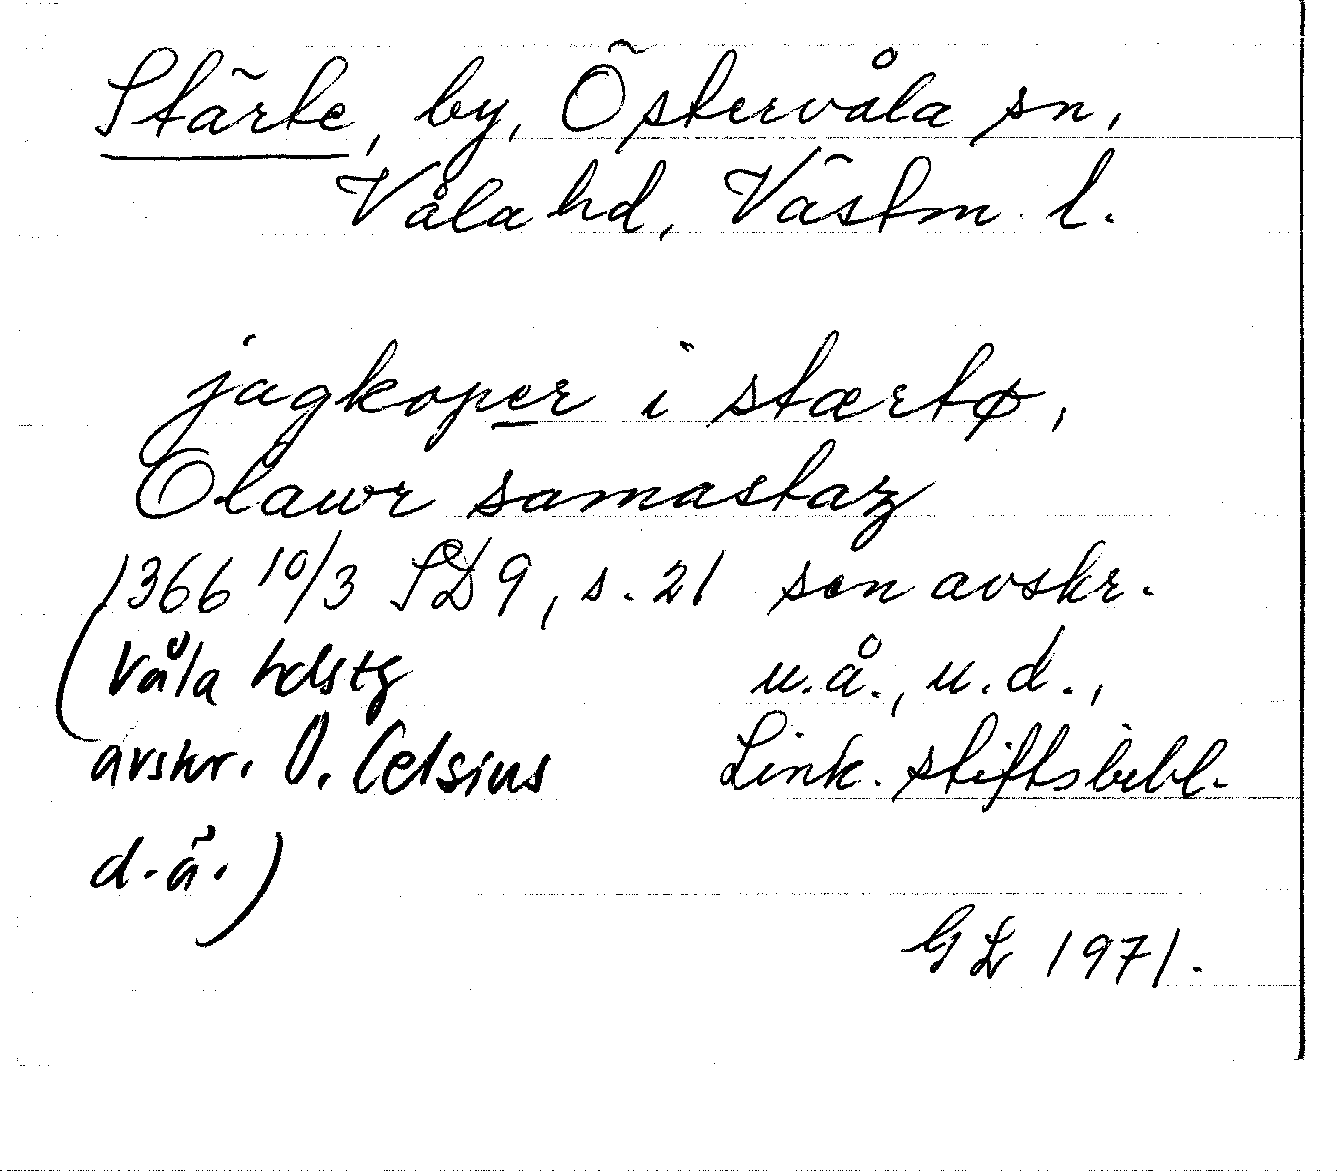 Stärte, by, Östervåla sn,
Våla hd, Västm. l.
jagkoper i stærtø,
Olawr samastaz
1366 10/3 SD 9, s. 21 sen avskr.
(Våla hdstg u.å., u.d.,
avskr. O. Celsius Link. stiftsbibl.
d.ä.)
GL 1971.